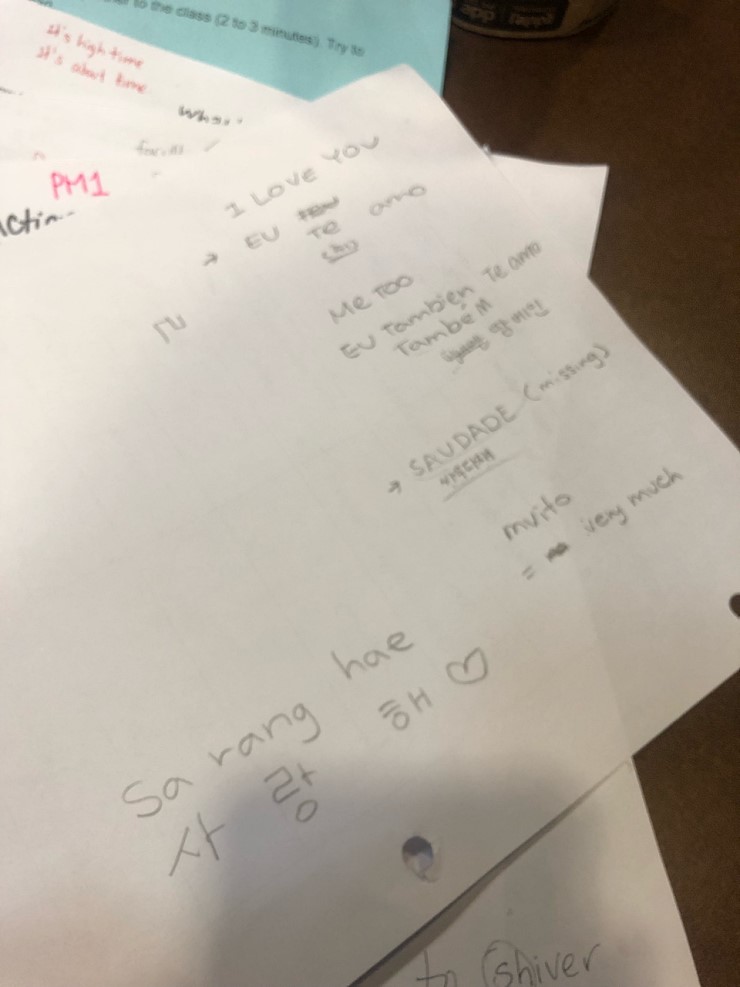 to the class (2 to 3 minutes). Try to
It's high time
It's about time
PM1
I LOVE YOU
→ EU Te amo
ㄹ
Me TOO
EU Tambien Te amo
TambéM
땀베잉
→ SAUDADE (missing)
사우다데
muito
= very much
Sa rang hae
사 랑 해 ♡
to shiver